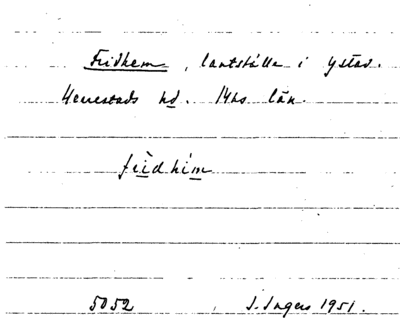 Fridhem, lantställe i Ystad.
Herrestads hd. Mhs län.
frìdhím
5052 I. Ingers 1951.